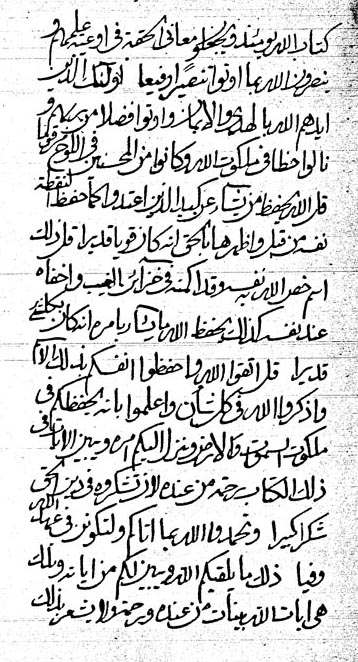 كتاب الله يومئذ و يجعلوا معاني الحقة في اوعية علمهم و
ينصرون الله بما اوتوا نصرا رفيعا اولئك الذين
ايدهم الله بالهدى و الايمان و اوتوا فضلا من ربهم و
نالوا حظا في ملكوت الله و كانوا من المحسنين في اللوح
قل الله يحفظ من يشاء عن كيد الذين اعتدوا كما حفظ النقطة
نفسه من قبل و اظهرها بالحق انه كان قويا قديرا قل ذلك
اسم خص الله به نفسه و قد اكمنه في خزائن الغيب و اخفاه
عند نفسه كذلك يحفظ الله ما يشاء بامره انه كان بكل شيء
قديرا قل اتقوا الله و احفظوا انفسكم بذلك الاسم
و اذكروا الله في كل شأن و اعلموا بانه يحفظكم في
ملكوت السموات و الارض و ينزل اليكم امره و يبين الايات في
ذلك الكتاب رحمة من عنده لان تشكروه في دين الحق
شكرا كبيرا و تحمدوا الله بما اتاكم و لتكونن في عهد الله
وفيا ذلك ما يلقيكم الله و يبين لكم من اياته و تلك
هي ايات الله بينات من عنده و رحمة و لا يشعر بذلك